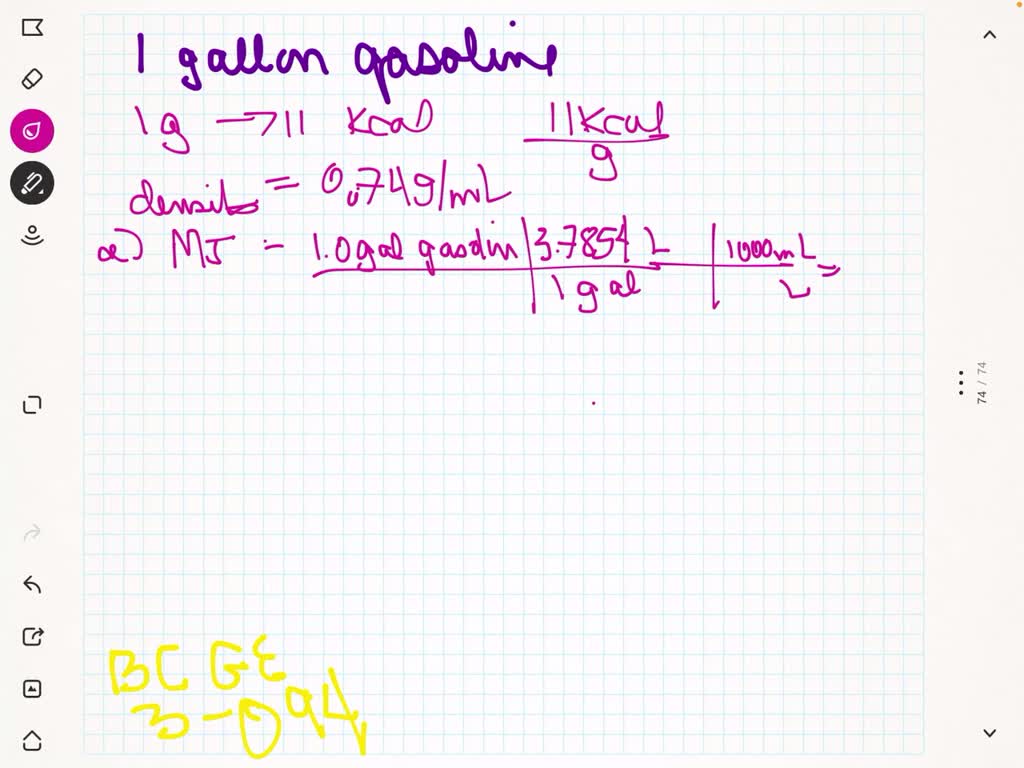 1 gallon gasoline
1g → 11 Kcal 11Kcal/g
density = 0.74g/mL
a) MJ = 1.0gal gasolin | 3.7854 L / 1 gal | 1000mL / L =
BCGE
3-094
74 / 74